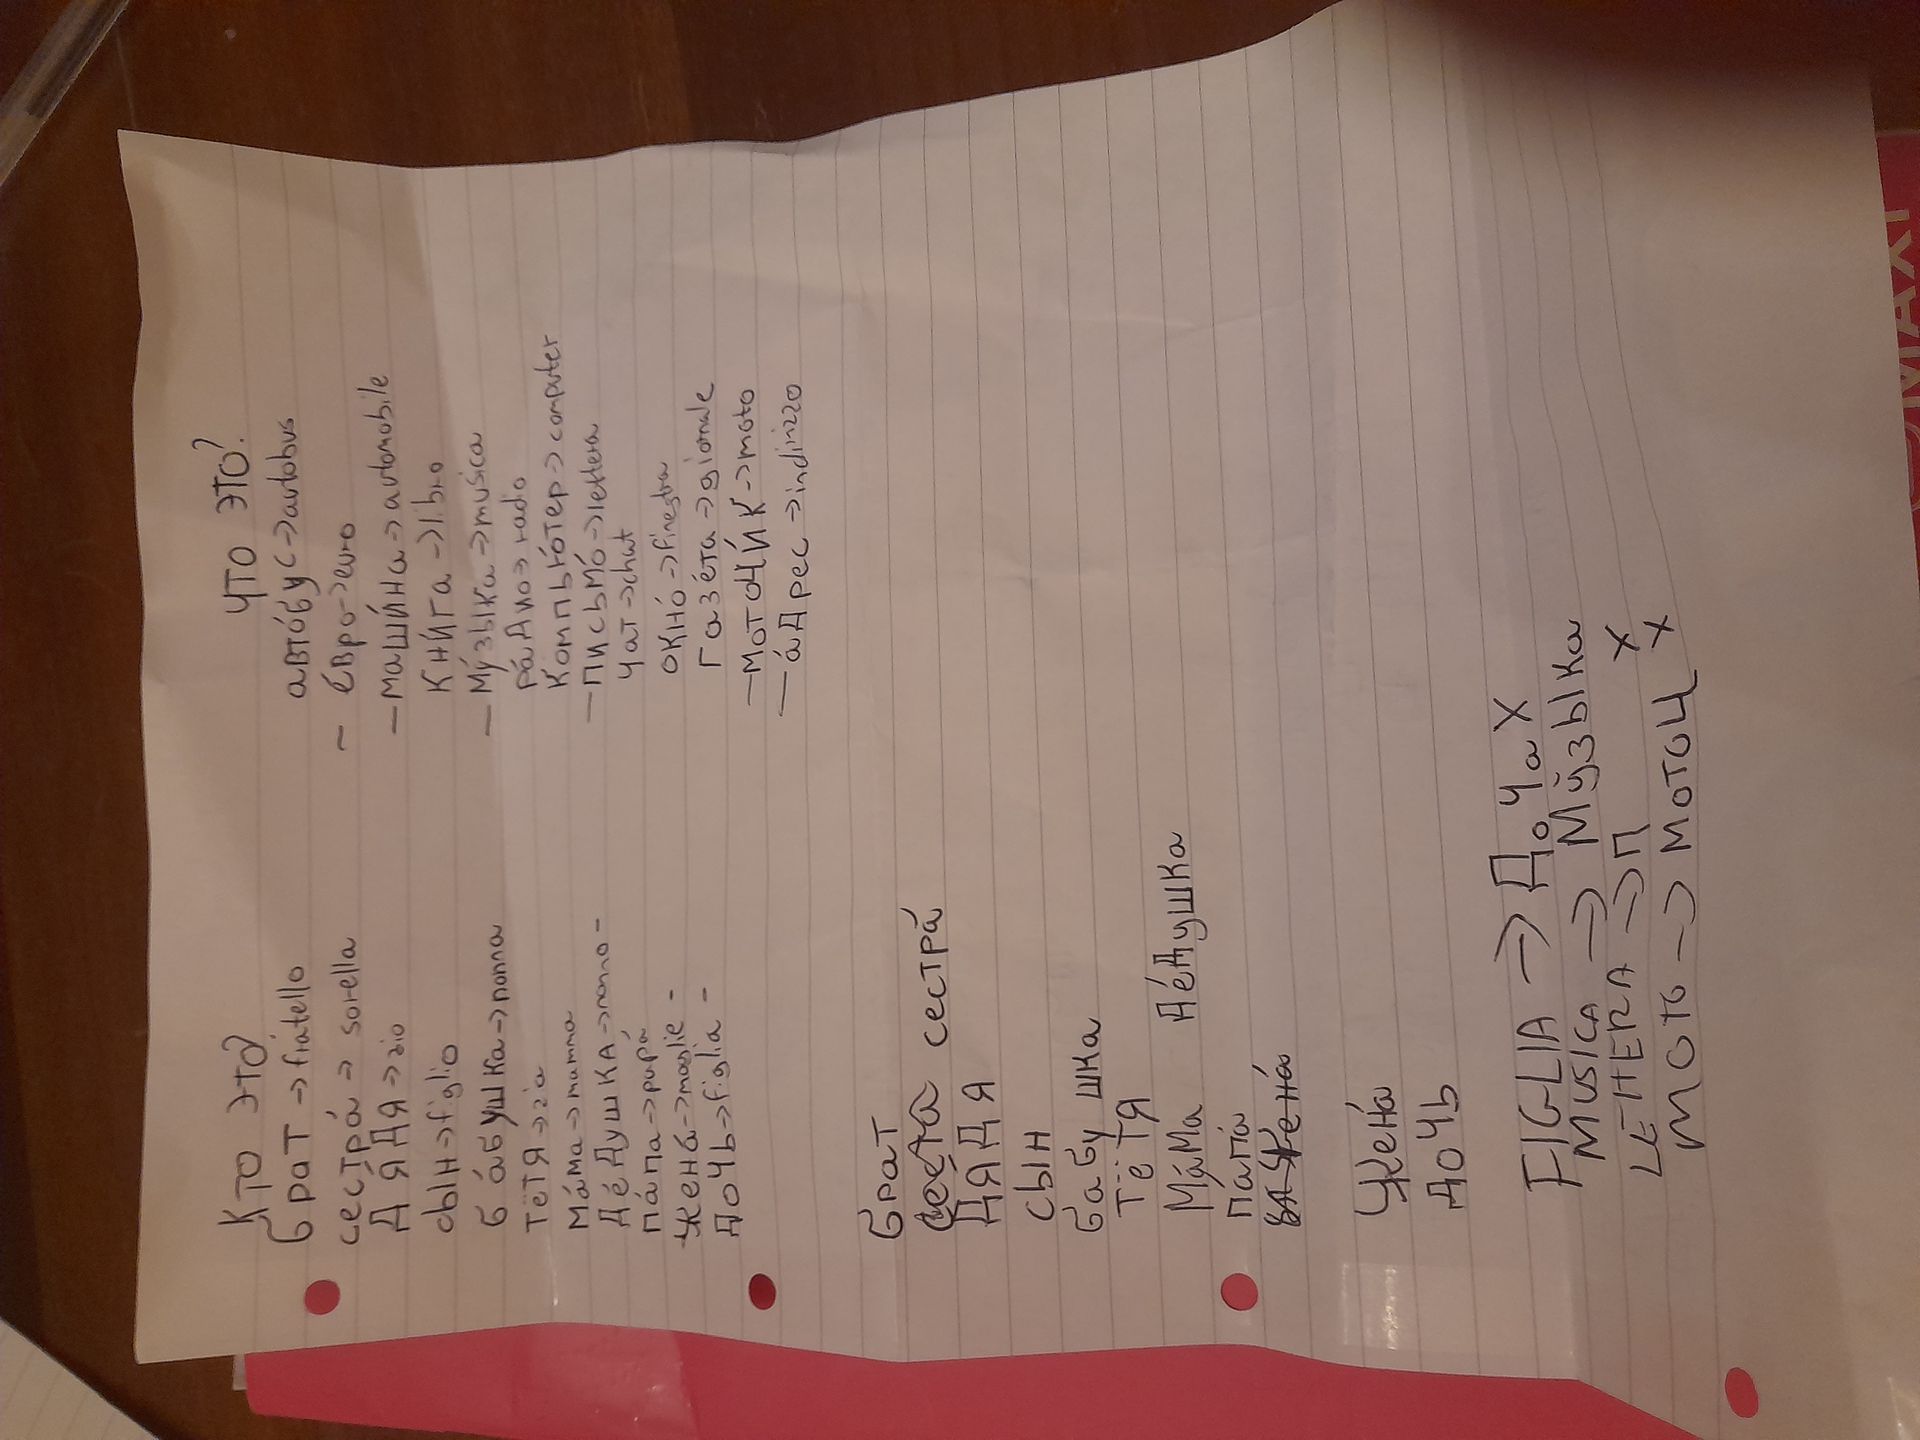 Кто это?
брат -> fratello
сестра́ -> sorella
Дя́дя -> zio
сын -> figlio
ба́бушка -> nonna
тётя -> zia
ма́ма -> mamma
де́душка -> nonno -
па́па -> papá
жена́ -> moglie -
дочь -> figlia -
что это?
авто́бус -> autobus
- е́вро -> euro
- маши́на -> automobile
кни́га -> libro
- му́зыка -> musica
ра́дио -> radio
компью́тер -> computer
- письмо́ -> lettera
чат -> chat
окно́ -> finestra
газе́та -> giornale
- мотоци́к -> moto
- а́дрес -> indirizzo
брат
сестра́
дядя
сын
бабушка
тётя
ма́ма де́душка
папа́
жена́
дочь
FIGLIA -> Доча X
MUSICA -> Му́зыка
LETTERA -> П X
MOTO -> мотоц X
MAXI